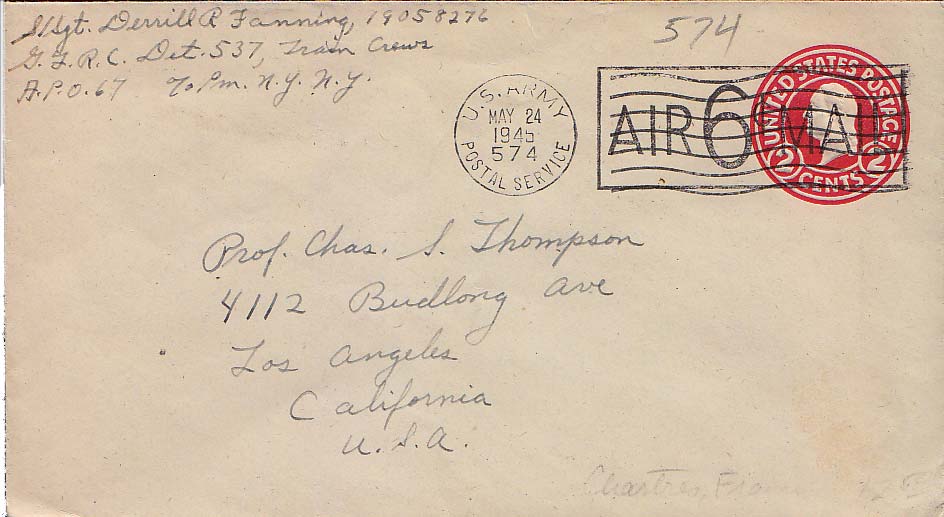 S/Sgt. Derrill R Fanning, 19058276
G.F.R.C. Det. 537, Train Crews
A.P.O. 67 % Pm. N.Y. N.Y.
574
U.S. ARMY
MAY 24
1945
574
POSTAL SERVICE
AIR 6¢ MAIL
UNITED STATES POSTAGE
2 CENTS 2
Prof. Chas. S. Thompson
4112 Budlong Ave
Los Angeles
California
U.S.A.
Chartres,